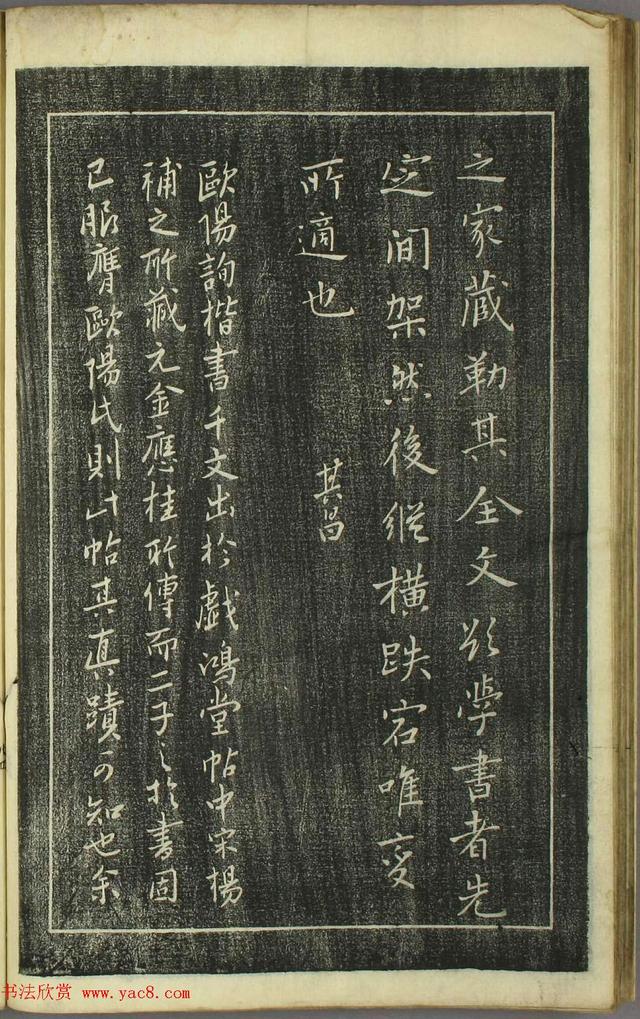 之家蔵勒其全文欲學書者先
定间架然後縱横跌宕唯变
所適也
其昌
歐陽詢楷書千文出於戯鴻堂帖中宋楊
補之所藏元金應桂所傳而二子之於書固
已服膺歐陽氏則此帖其真蹟可知也余
书法欣赏 www.yac8.com